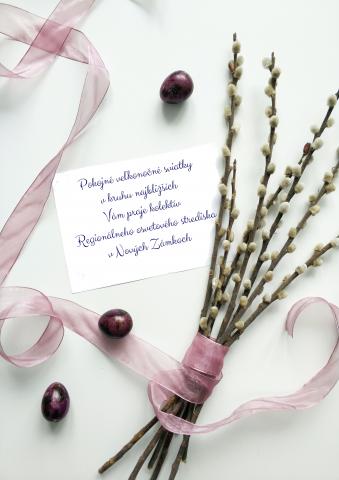 Pokojné veľkonočné sviatky
v kruhu najbližších
Vám praje kolektív
Regionálneho osvetového strediska
v Nových Zámkoch